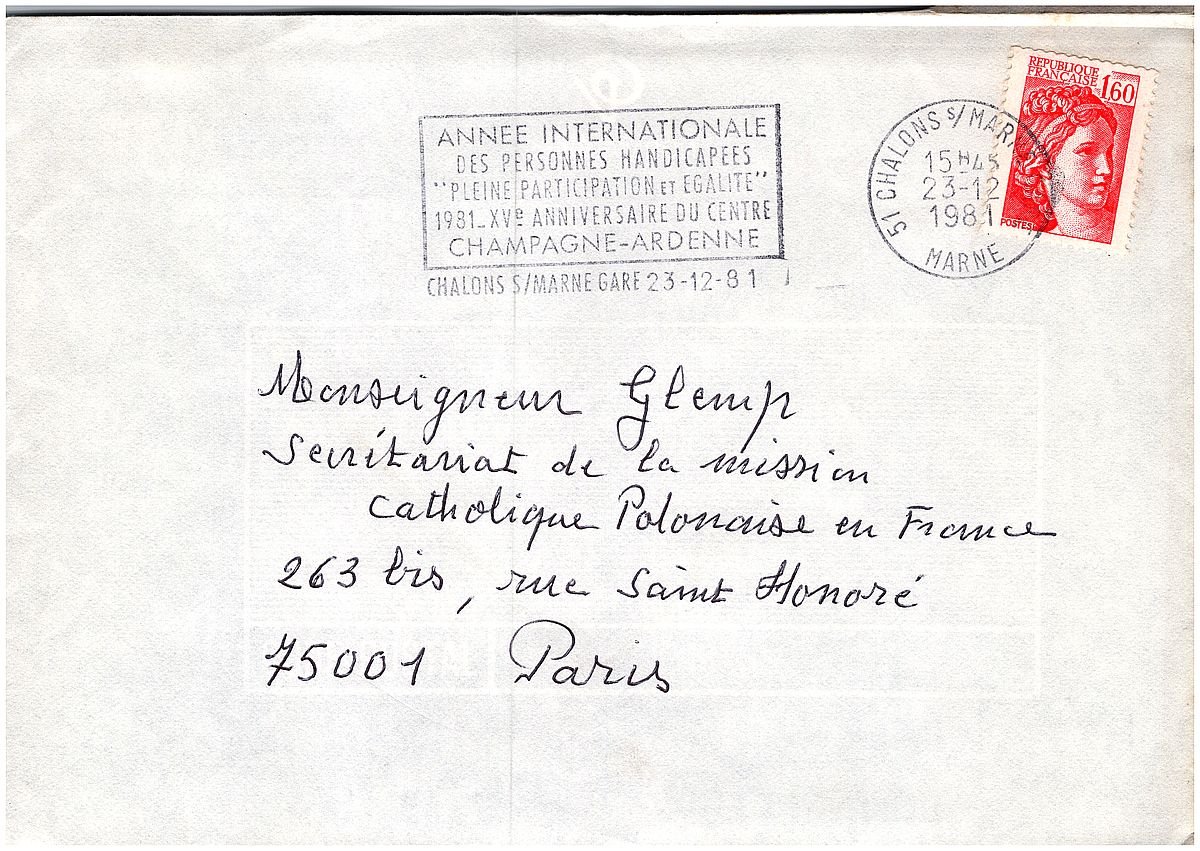 ANNEE INTERNATIONALE
DES PERSONNES HANDICAPEES
"PLEINE PARTICIPATION ET EGALITE"
1981_XVe ANNIVERSAIRE DU CENTRE
CHAMPAGNE-ARDENNE
CHALONS S/MARNE GARE 23-12-81
51 CHALONS S/MARNE
15H45
23-12
1981
MARNE
REPUBLIQUE
FRANÇAISE
1,60
POSTES
Monseigneur Glemp
Secrétariat de la mission
catholique Polonaise en France
263 bis, rue Saint Honoré
75001 Paris